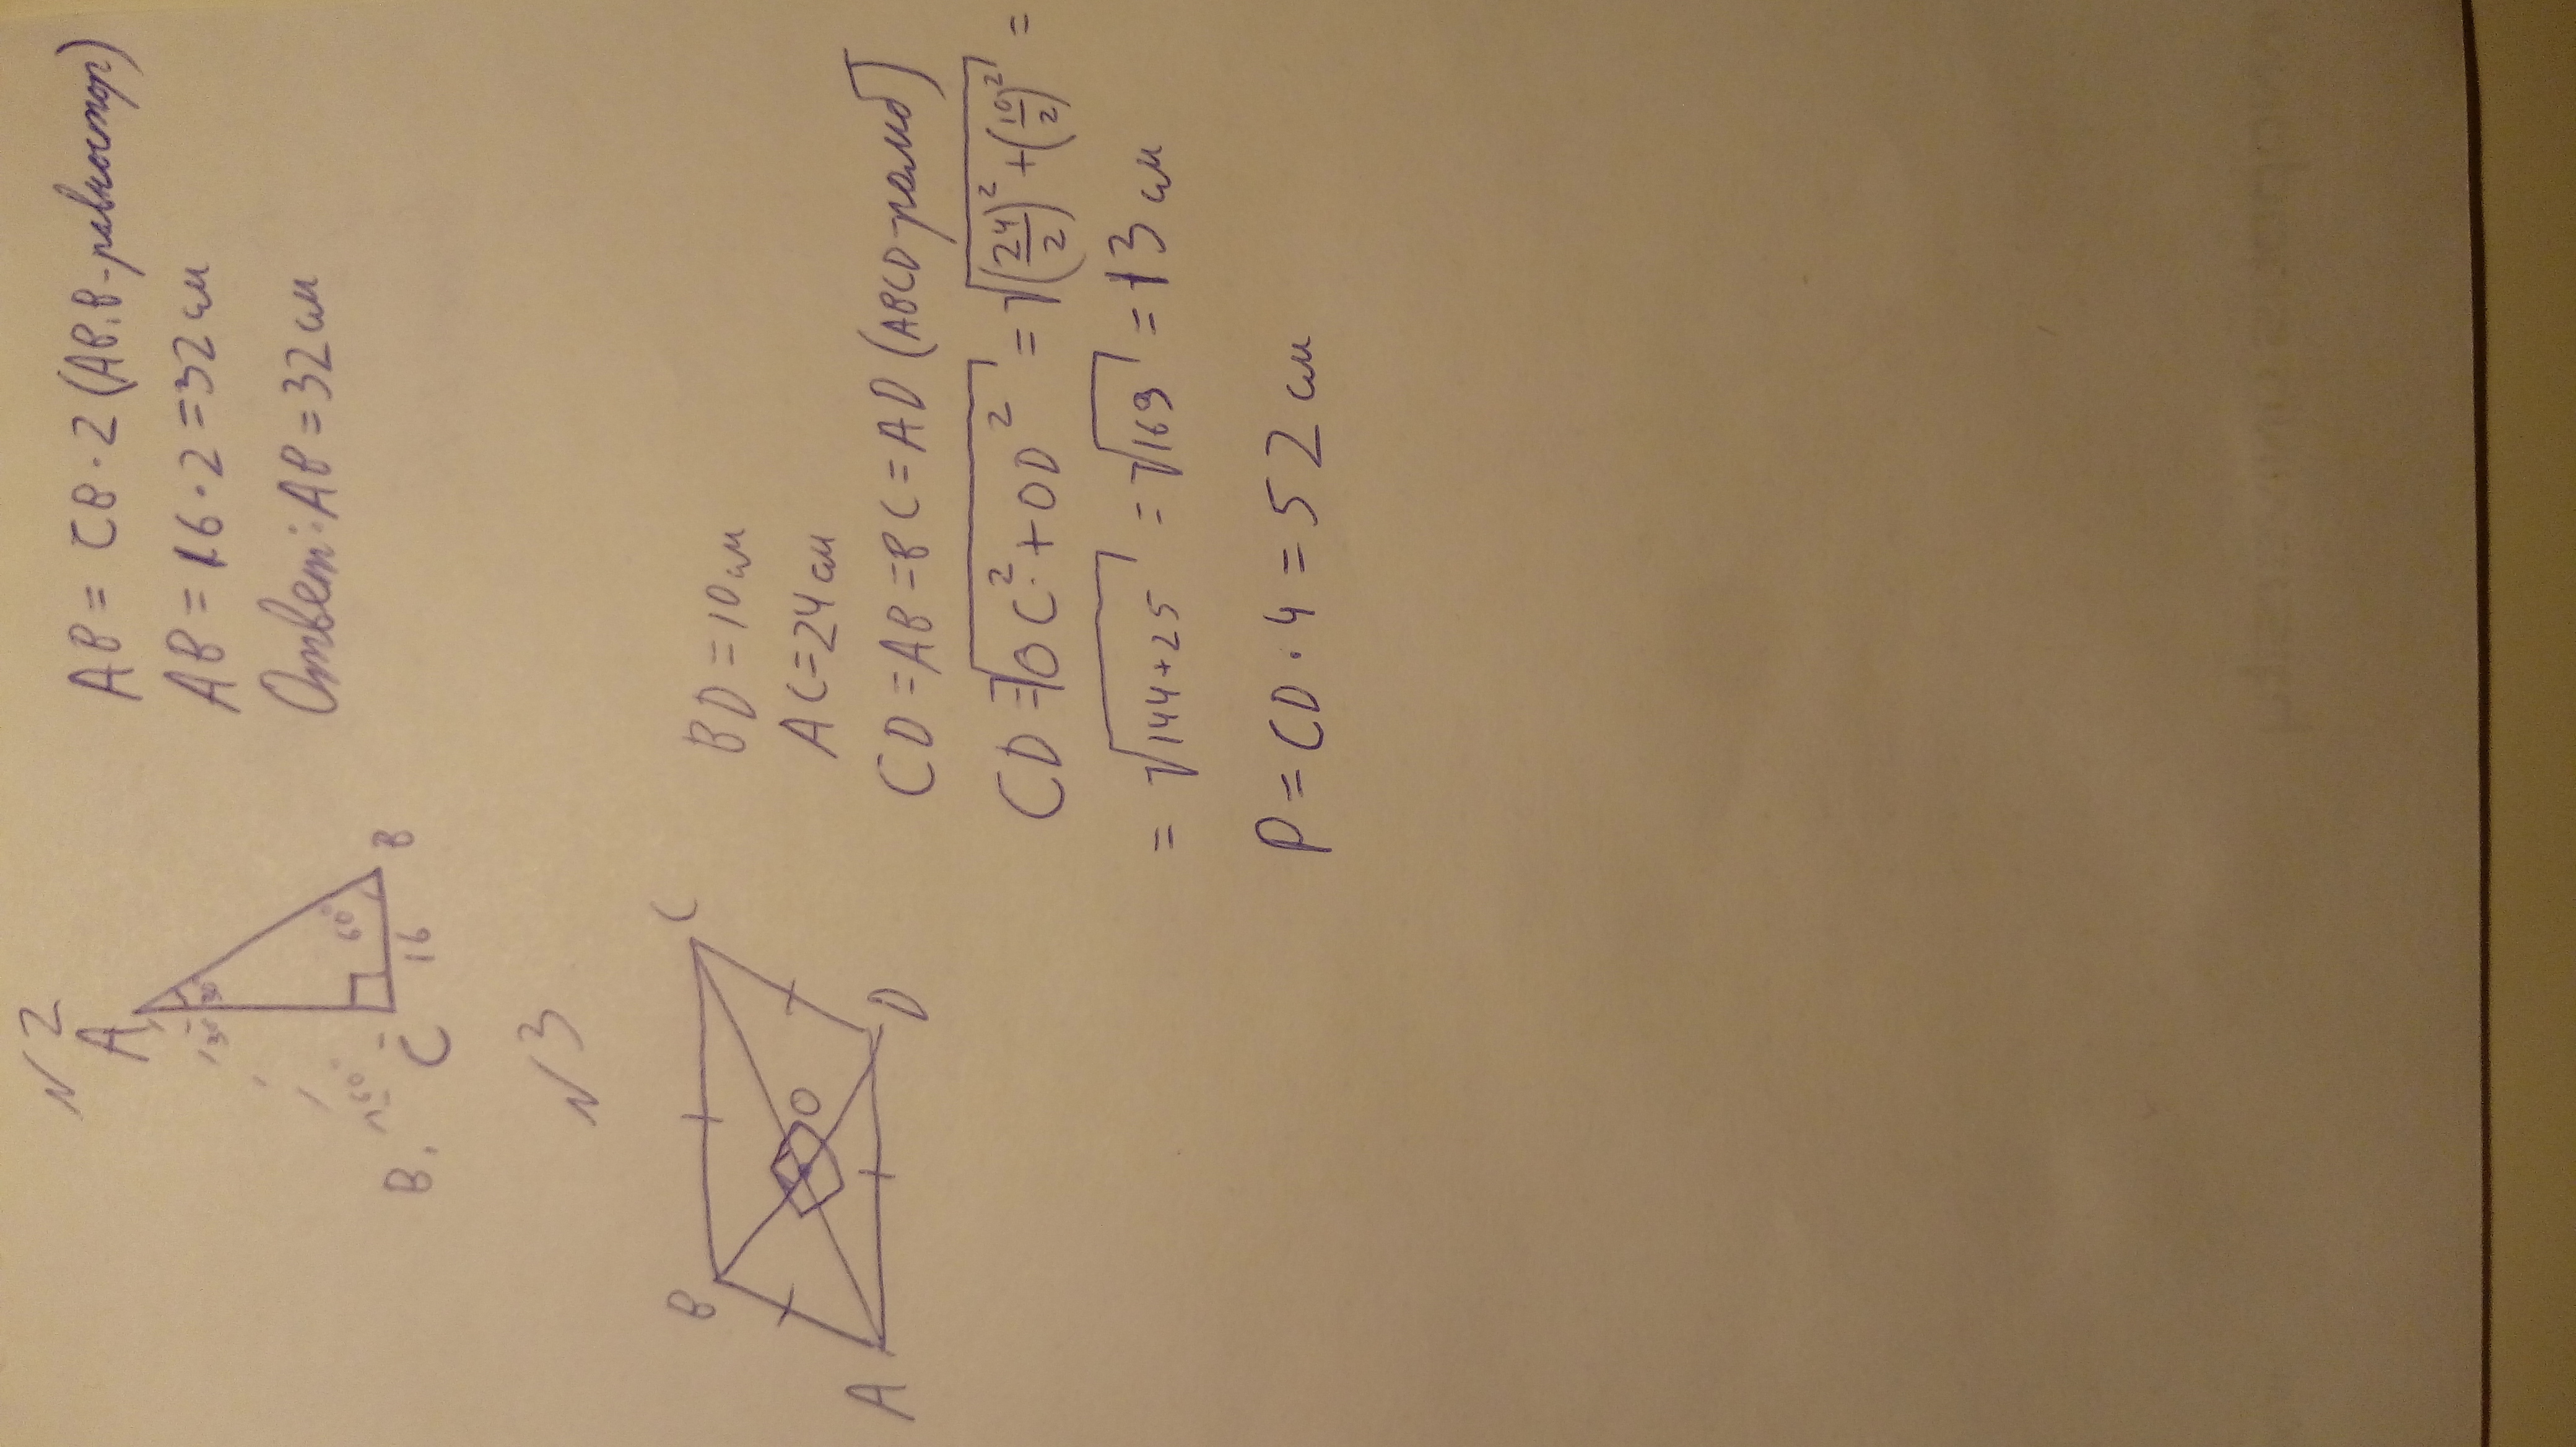 N2
A
30°
60°
16
B
C
30°
60°
B₁
AB = CB · 2 (AB₁B - равностор)
AB = 16 · 2 = 32 см
Ответ: AB = 32 см
N3
B
C
O
A
D
BD = 10 см
AC = 24 см
CD = AB = BC = AD (ABCD - ромб)
CD = √(OC² + OD²) = √((24/2)² + (10/2)²) =
= √(144 + 25) = √169 = 13 см
P = CD · 4 = 52 см